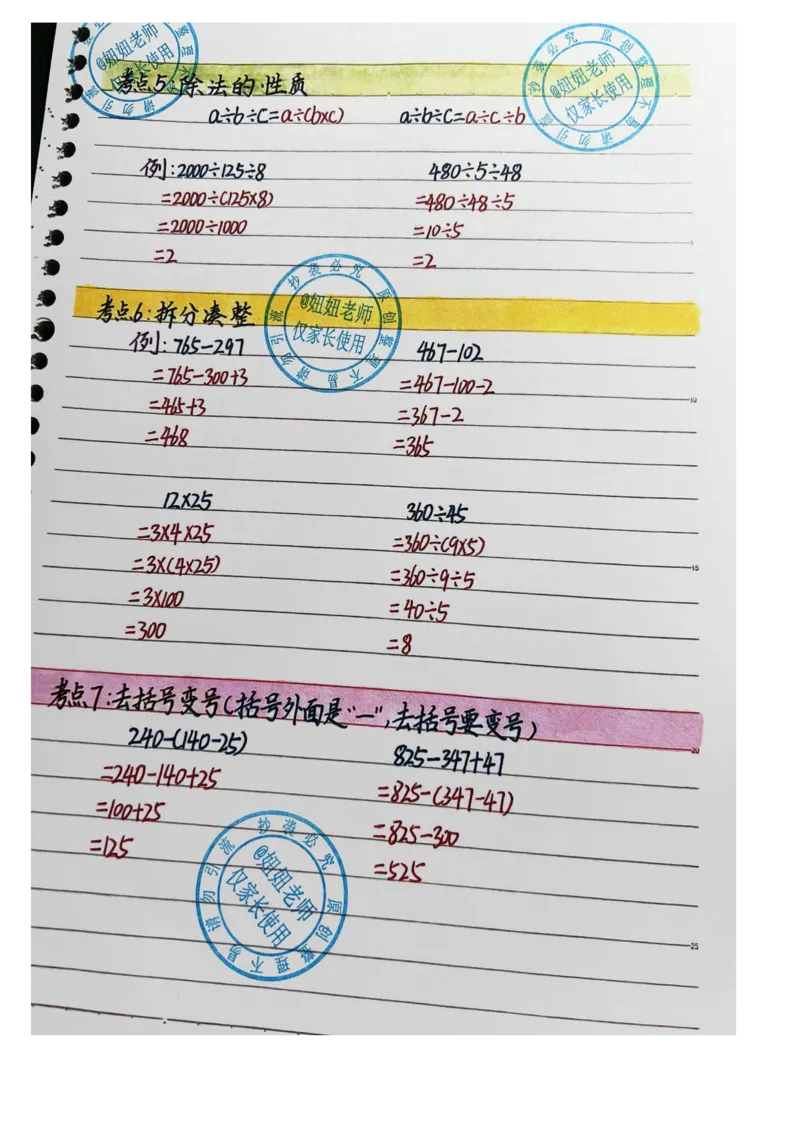 考点5:除法的性质
a÷b÷c=a÷(b×c) a÷b÷c=a÷c÷b
例:2000÷125÷8 480÷5÷48
=2000÷(125×8) =480÷48÷5
=2000÷1000 =10÷5
=2 =2
考点6:拆分凑整
例:765-297 467-102
=765-300+3 =467-100-2
=465+3 =367-2
=468 =365
12×25 360÷45
=3×4×25 =360÷(9×5)
=3×(4×25) =360÷9÷5
=3×100 =40÷5
=300 =8
考点7:去括号变号(括号外面是"一",去括号要变号)
240-(140-25) 825-347+47
=240-140+25 =825-(347-47)
=100+25 =825-300
=125 =525
@妞妞老师
仅家长使用
原创整理不易
请勿引流
抄袭必究
5
10
15
20
25